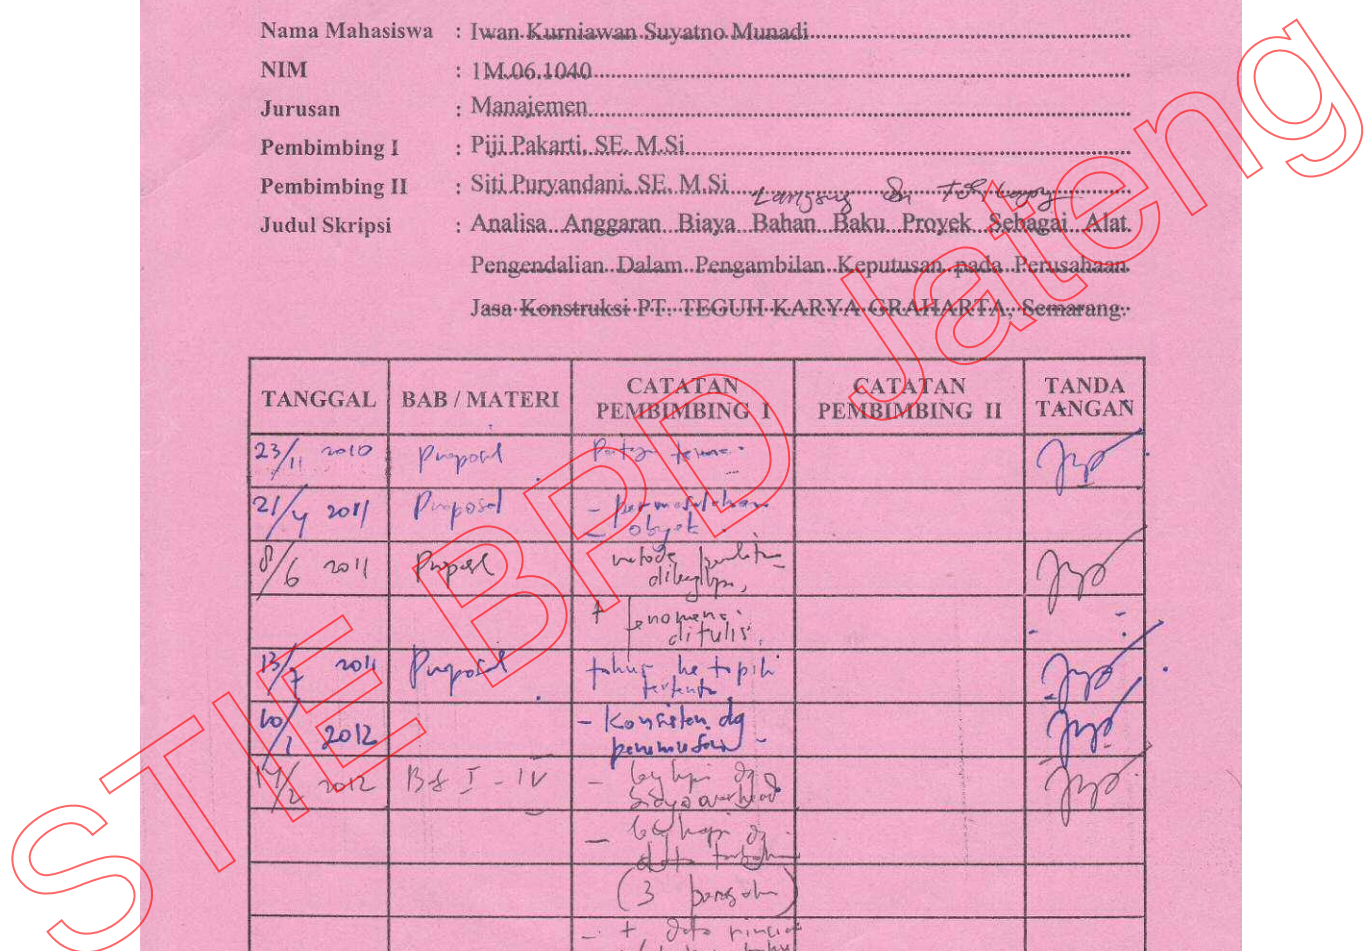 Nama Mahasiswa : Iwan Kurniawan Suyatno Munadi
NIM : 1M.06.1040
Jurusan : Manajemen
Pembimbing I : Piji Pakarti, SE. M.Si
Pembimbing II : Siti Puryandani, SE, M.Si
Langsung dn
Judul Skripsi : Analisa Anggaran Biaya Bahan Baku Proyek Sebagai Alat
Pengendalian Dalam Pengambilan Keputusan pada Perusahaan
Jasa Konstruksi PT. TEGUH KARYA GRAHARTA, Semarang.
TANGGAL BAB / MATERI CATATAN PEMBIMBING I CATATAN PEMBIMBING II TANDA TANGAN
23/11 2010 Proposal
21/4 2011 Proposal - permasalahan
- obyek
8/6 2011 Proposal metode
+ fenomena
ditulis.
13/7 2011 Proposal
tertentu
10/1 2012 - Konsisten dg
perumusan
14/2 2012 Bab I - IV - lengkapi dg
biaya overhead
- lengkapi dg
data
(3
- + data rincian
STIE BPD Jateng